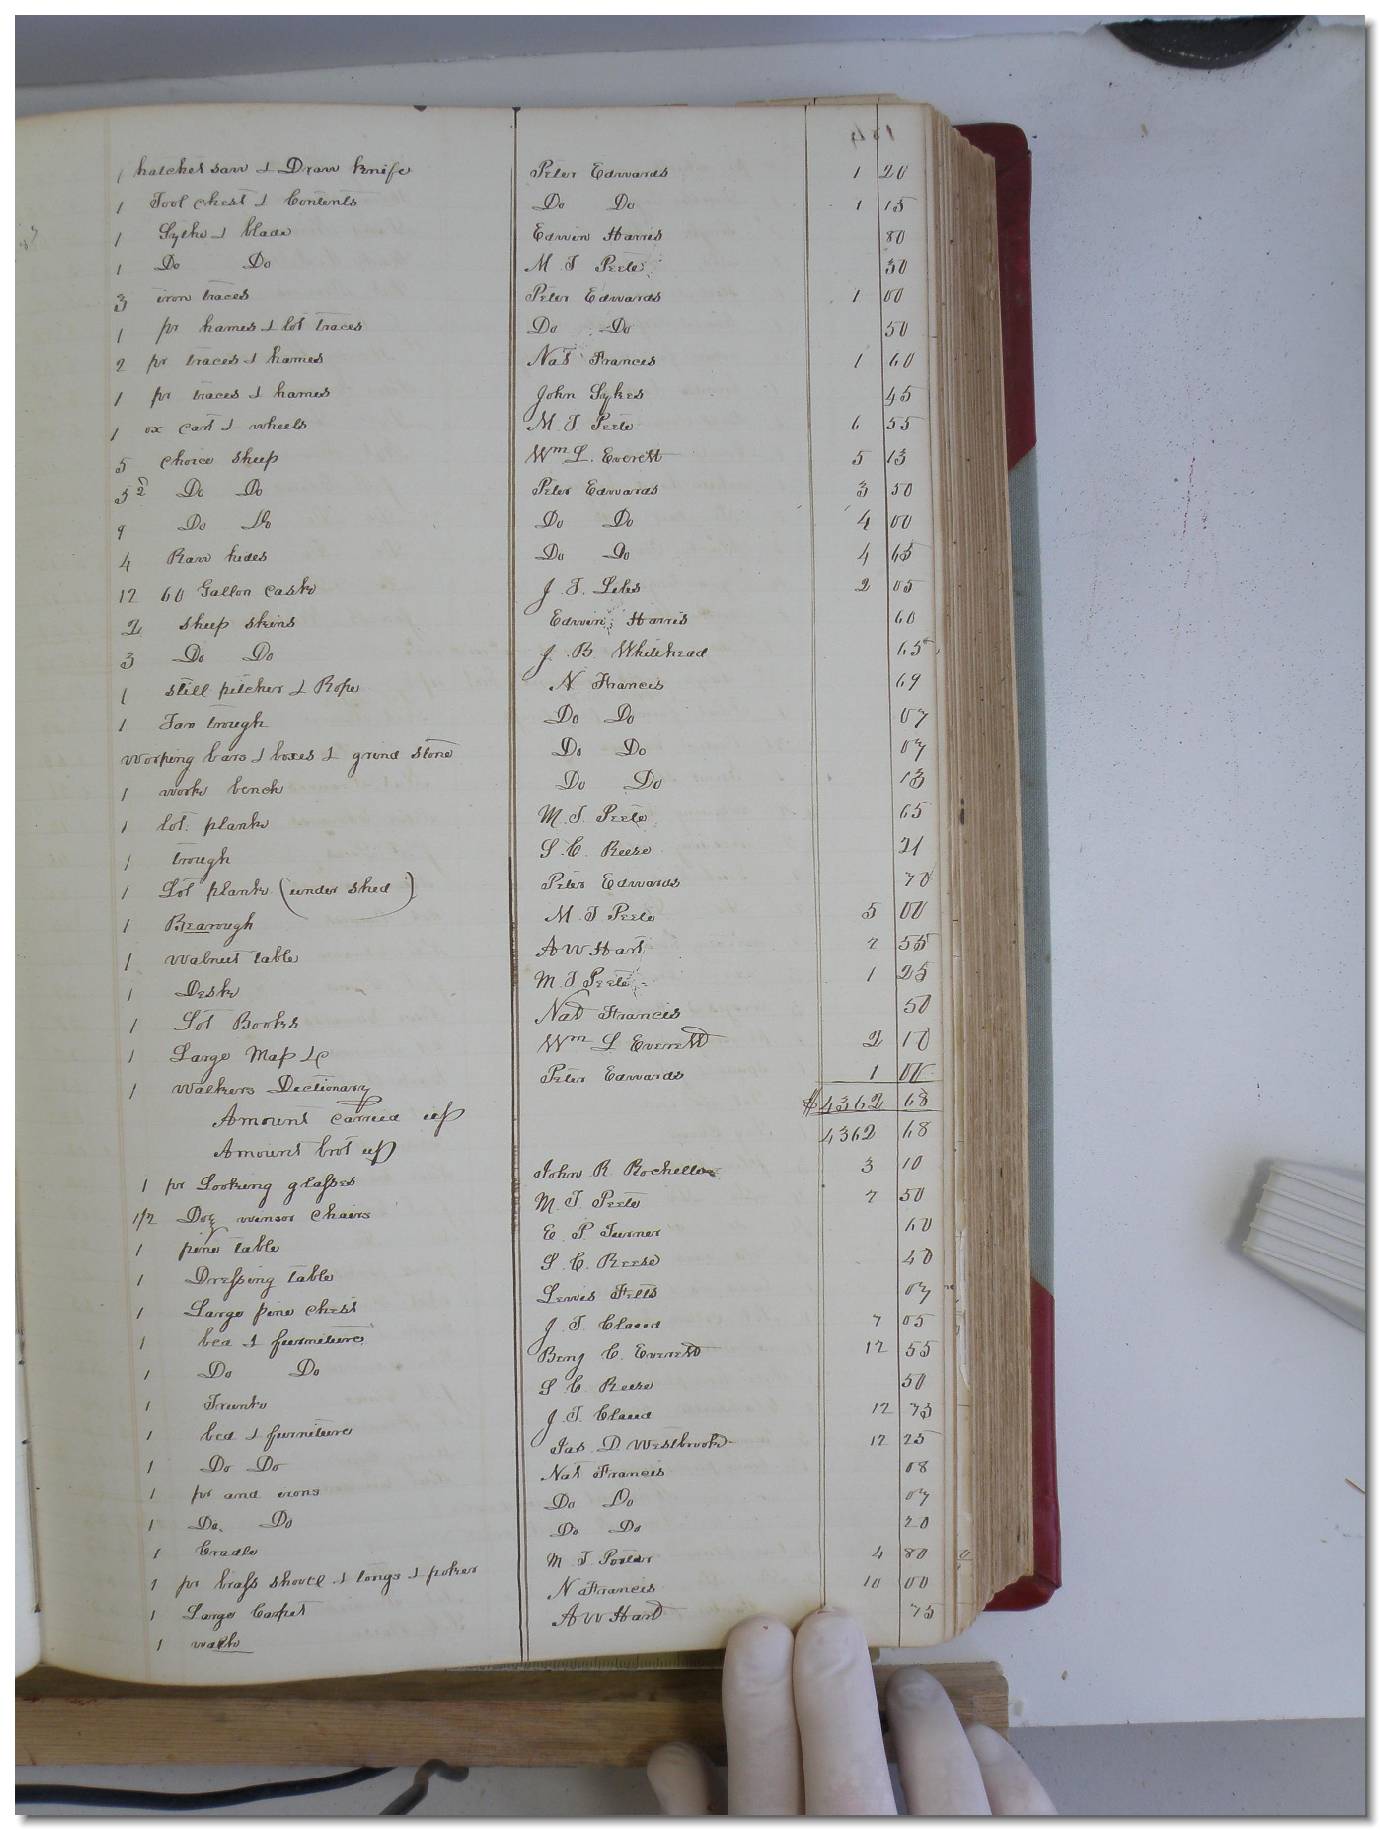 184
1 hatchet saw & Draw knife Peter Edwards 1 20
1 Tool chest & Contents Do Do 1 15
1 Sythe & blade Edwin Harris 80
1 Do Do M. T Peete 30
3 iron traces Peter Edwards 1 00
1 pr hames & lot traces Do Do 50
2 pr traces & hames Nat Frances 1 60
1 pr traces & hames John Sykes 45
1 ox cart & wheels M. T Peete 6 55
5 choice sheep Wm L. Everett 5 13
5 2d Do Do Peter Edwards 3 50
9 Do Do Do Do 4 00
4 Raw hides Do Do 4 65
12 60 Gallon casks J. T. Liles 2 05
2 sheep skins Edwin Harris 60
3 Do Do J. B. Whitehead 65
1 still pitcher & Rope N Francis 69
1 Tan trough Do Do 07
working bars & boxes & grind stone Do Do 07
1 work bench Do Do 13
1 lot. plank M. T. Peete 65
1 trough S. C. Reese 21
1 Lot plank (under shed) Peter Edwards 70
1 M. T Peete 5 00
1 Walnut table A W Hart 2 55
1 Desk M. T Peete 1 25
1 Lot Books Nat Francis 50
1 Large Map &c Wm L Everett 2 10
1 Walkers Dectionary Peter Edwards 1 00
Amount carried up $4362 68
Amount brot up 4362 68
1 pr Looking glasses John R Rochelle 3 10
1/2 Doz winsor chairs M. T Peete 7 50
1 pine table E. P. Turner 60
1 Dressing table S. C. Reese 40
1 Large pine chest Lewis Felts 07
1 bed & furniture J. T. Claud 7 05
1 Do Do Benj C. Everett 12 55
1 Trunk S C Reese 50
1 bed & furniture J. T. Claud 12 75
1 Do Do Jas. D Westbrook 12 25
1 pr and irons Nat Francis 08
1 Do. Do Do Do 07
1 Cradle Do Do 20
1 pr brass shovel & tongs & poker M T Porter 4 80
1 Large Carpet N Francis 10 00
1 A W Hart 75